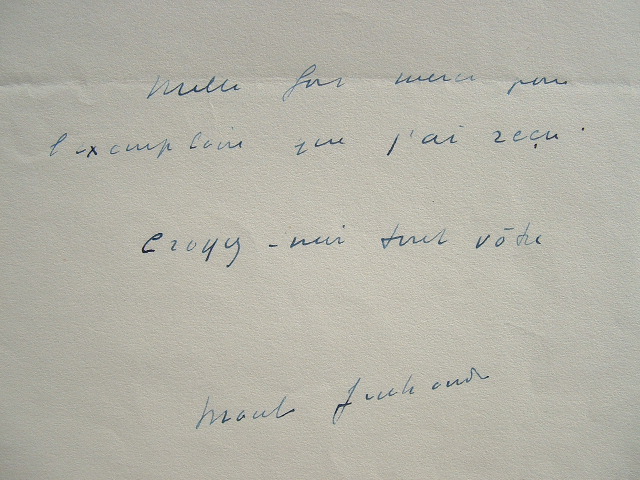 Mille fois merci pour
l'exemplaire que j'ai reçu.
Croyez-moi tout vôtre
Marcel Jouhandeau